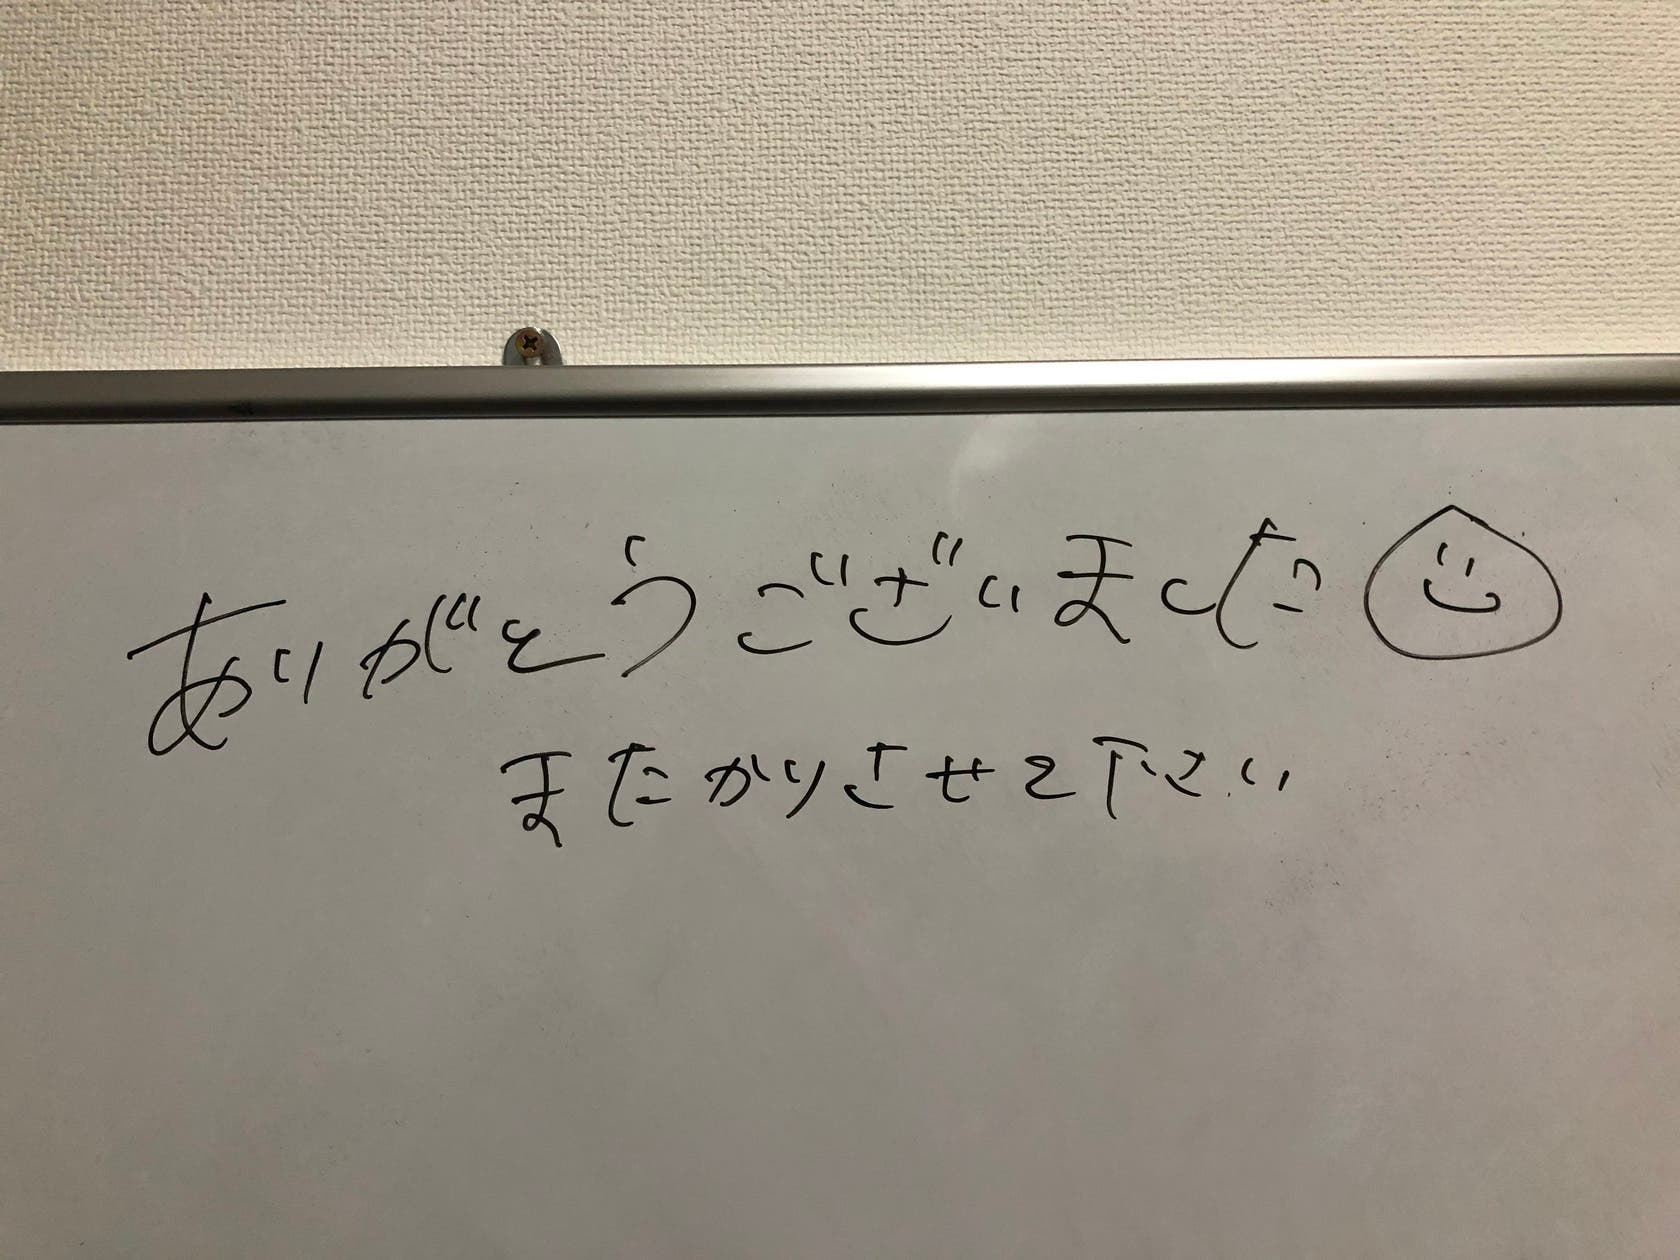 ありがとうございました
またかりさせて下さい